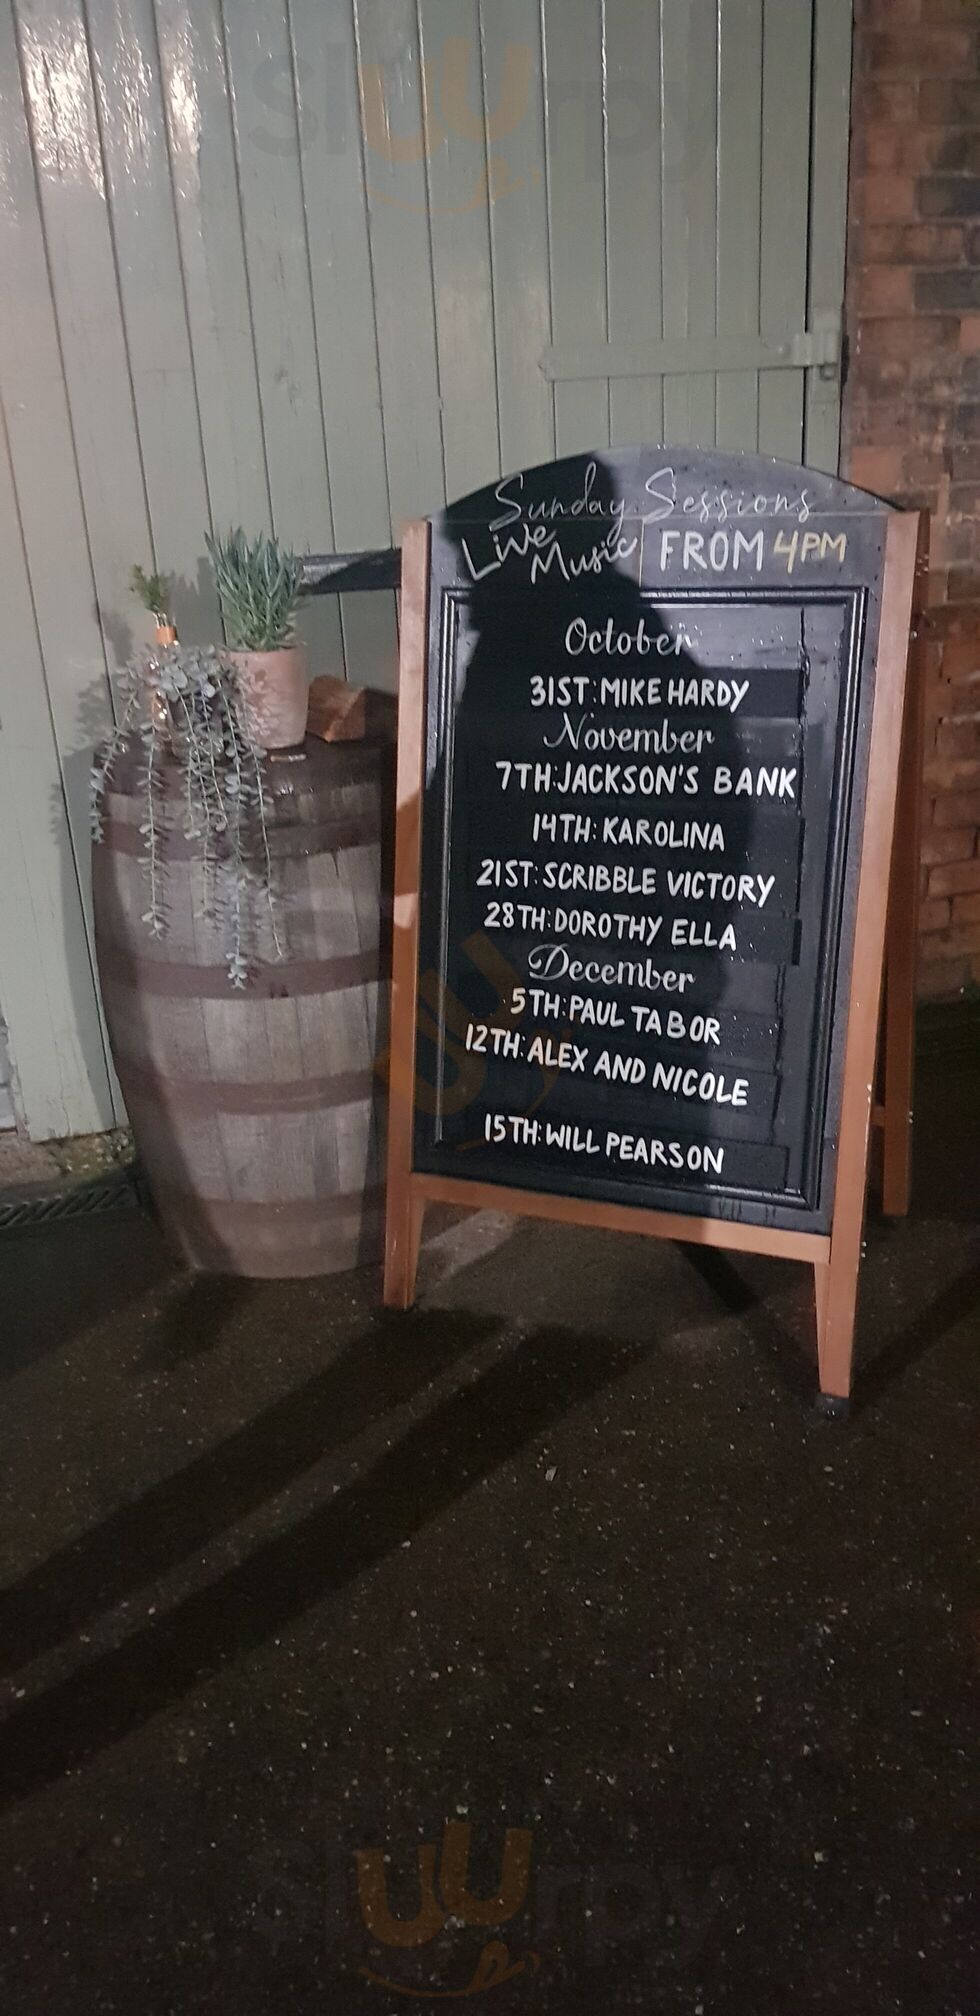 Slurrpy
Sunday Sessions
Live Music FROM 4PM
October
31ST: MIKE HARDY
November
7TH: JACKSON'S BANK
14TH: KAROLINA
21ST: SCRIBBLE VICTORY
28TH: DOROTHY ELLA
December
5TH: PAUL TABOR
12TH: ALEX AND NICOLE
15TH: WILL PEARSON
Slurrpy